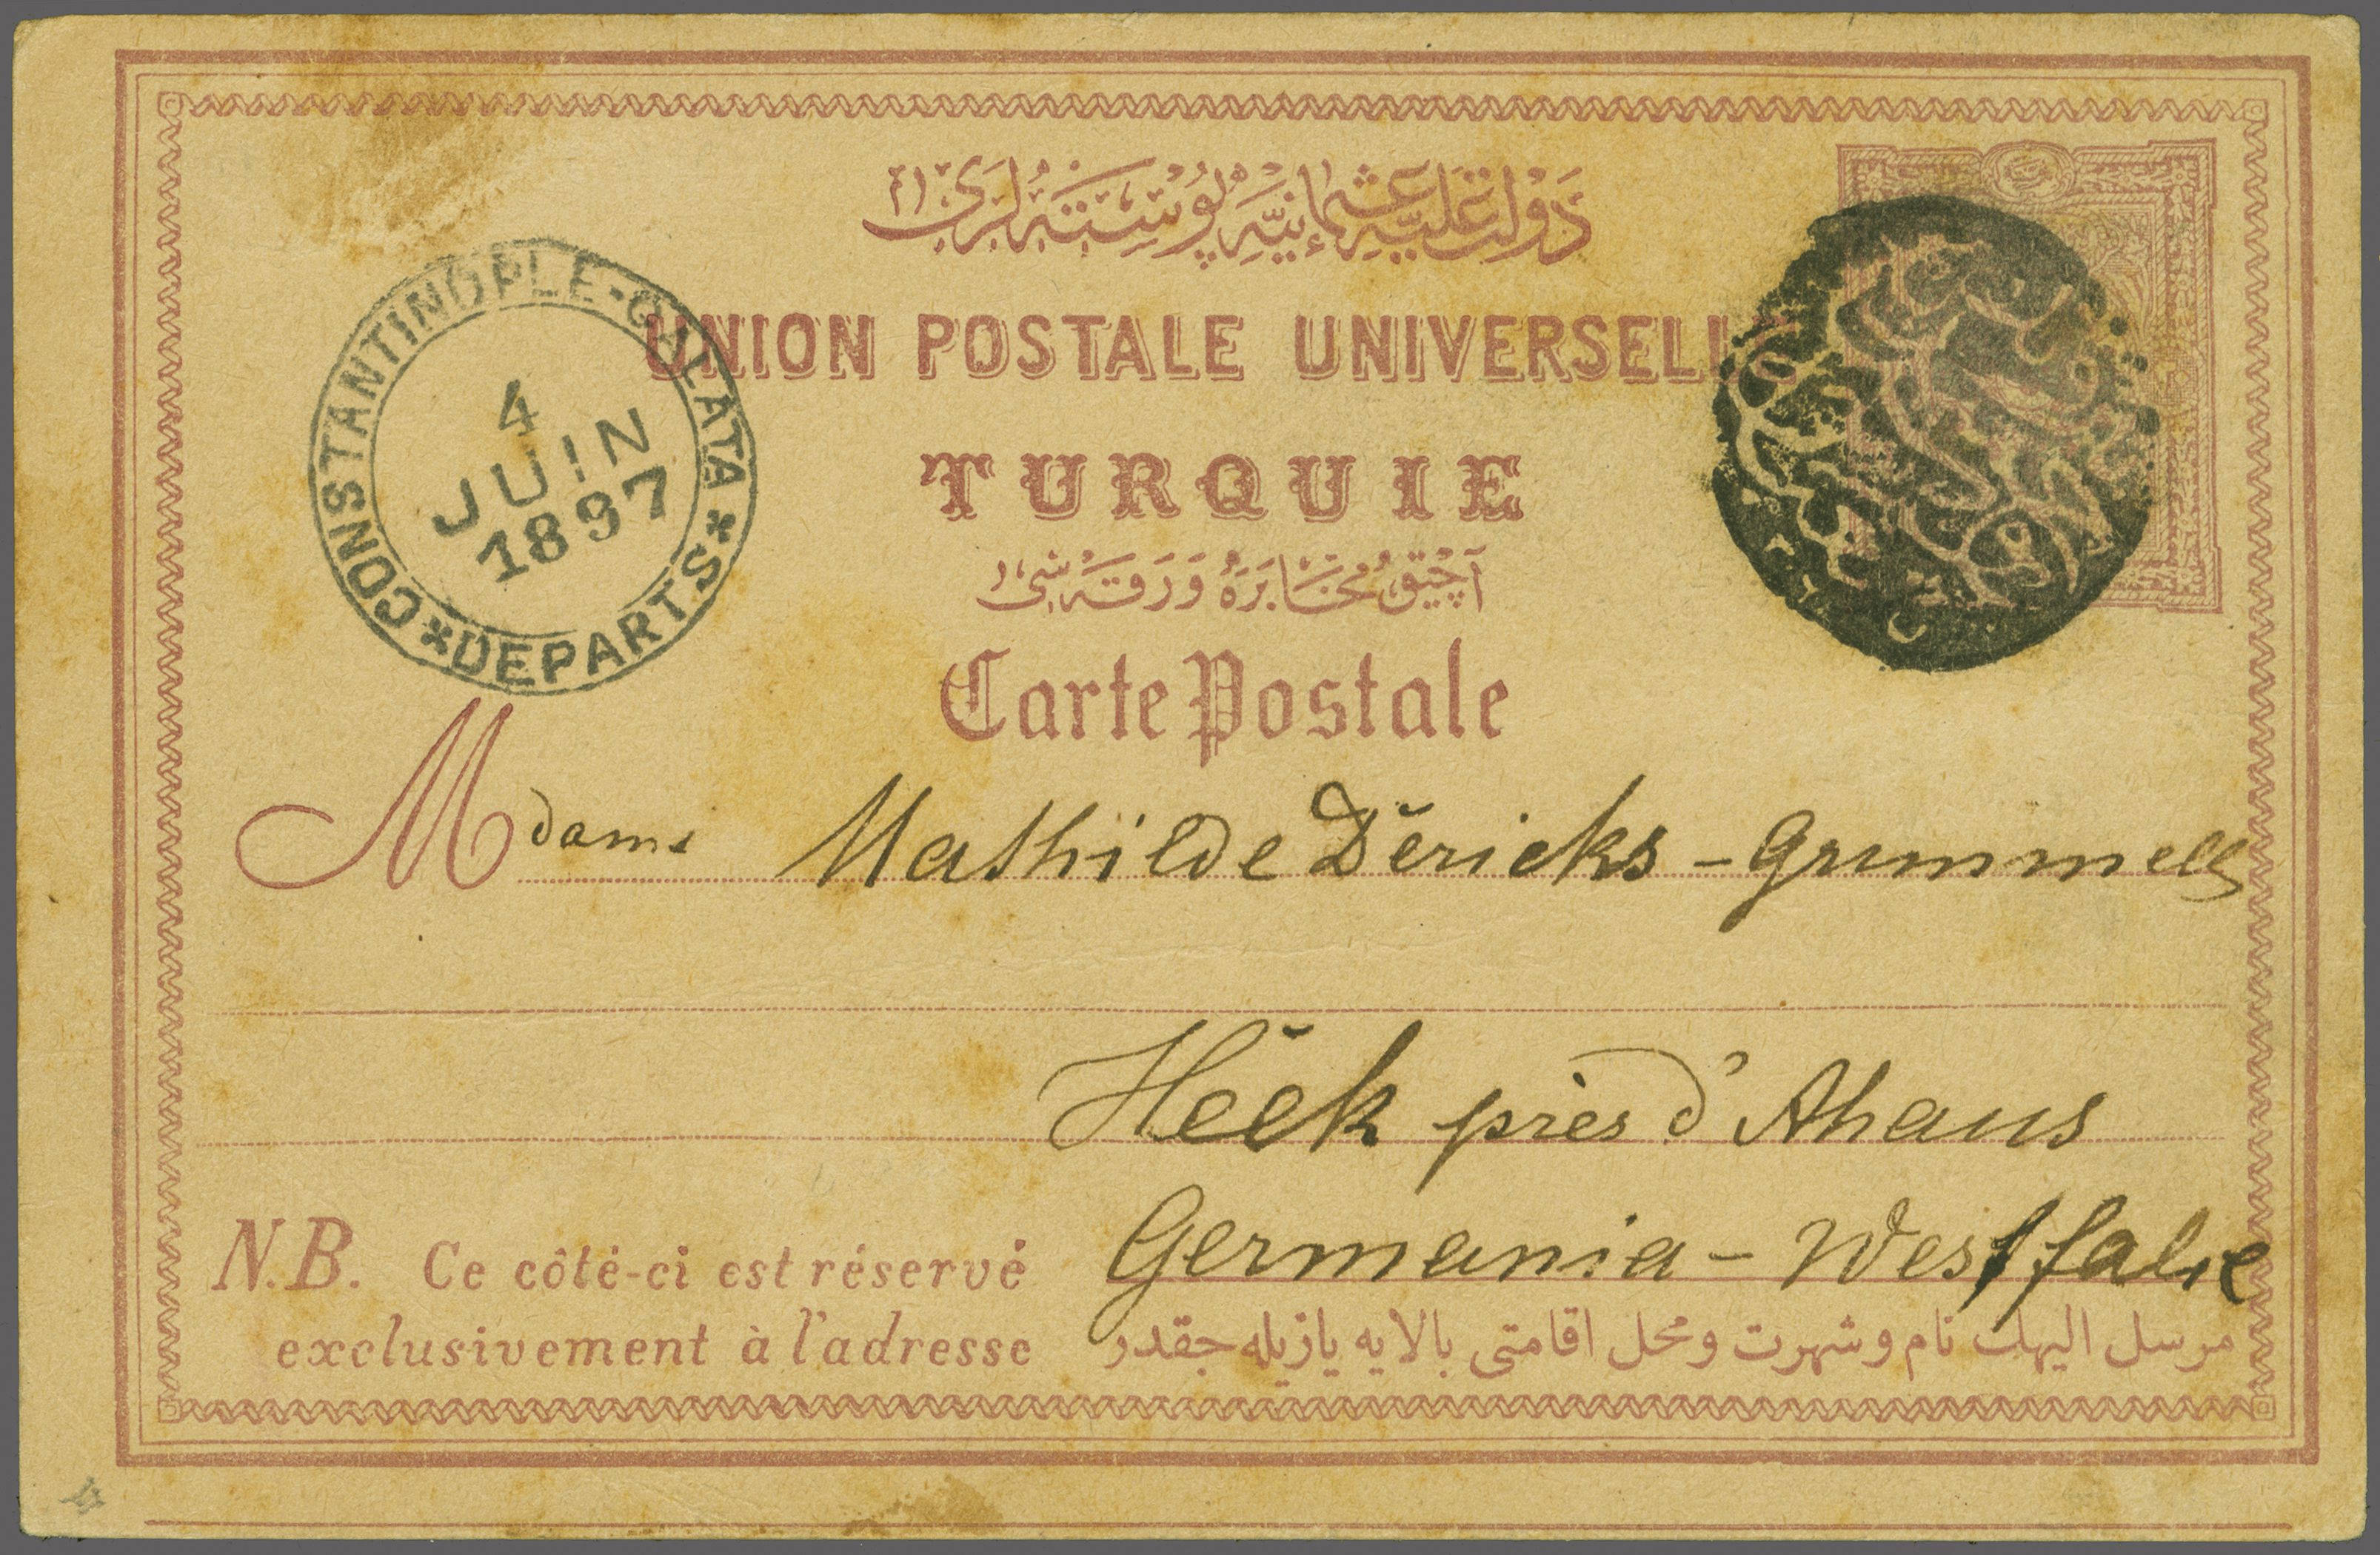 دولت علیه عثمانیه پوسته لری
UNION POSTALE UNIVERSELLE
TURQUIE
آچیق مخابره ورقه سی
Carte Postale
CONSTANTINOPLE-GALATA
4
JUIN
1897
* DEPARTS *
Mdame Mathilde Dĕricks - Grummels
Hĕek près d'Ahaus
Germania - Westfalie
N.B. Ce côté-ci est réservé
exclusivement à l'adresse
مرسل الیهك نام و شهرت و محل اقامتی بالایه یازیله جقدر